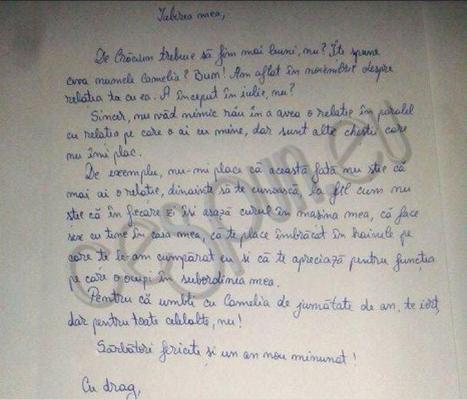 Iubirea mea,
De Crăciun trebuie să fim mai buni, nu? Îți spune
ceva numele Camelia? Bum! Am aflat în noiembrie despre
relația ta cu ea. A început în iulie, nu?
Sincer, nu văd nimic rău în a avea o relație în paralel
cu relația pe care o ai cu mine, dar sunt alte chestii care
nu îmi plac.
De exemplu, nu-mi place că această fată nu știe că
mai ai o relație, dinainte să te cunoască, la fel cum nu
știe că în fiecare zi își așază curul în mașina mea, că face
sex cu tine în casa mea, că te place îmbrăcat în hainele pe
care ți le-am cumpărat eu și că te apreciază pentru funcția
pe care o ocupi în subordinea mea.
Pentru că umbli cu Camelia de jumătate de an, te iert,
dar pentru toate celelalte, nu!
Sărbători fericite și un an nou minunat!
Cu drag,
cespun.eu